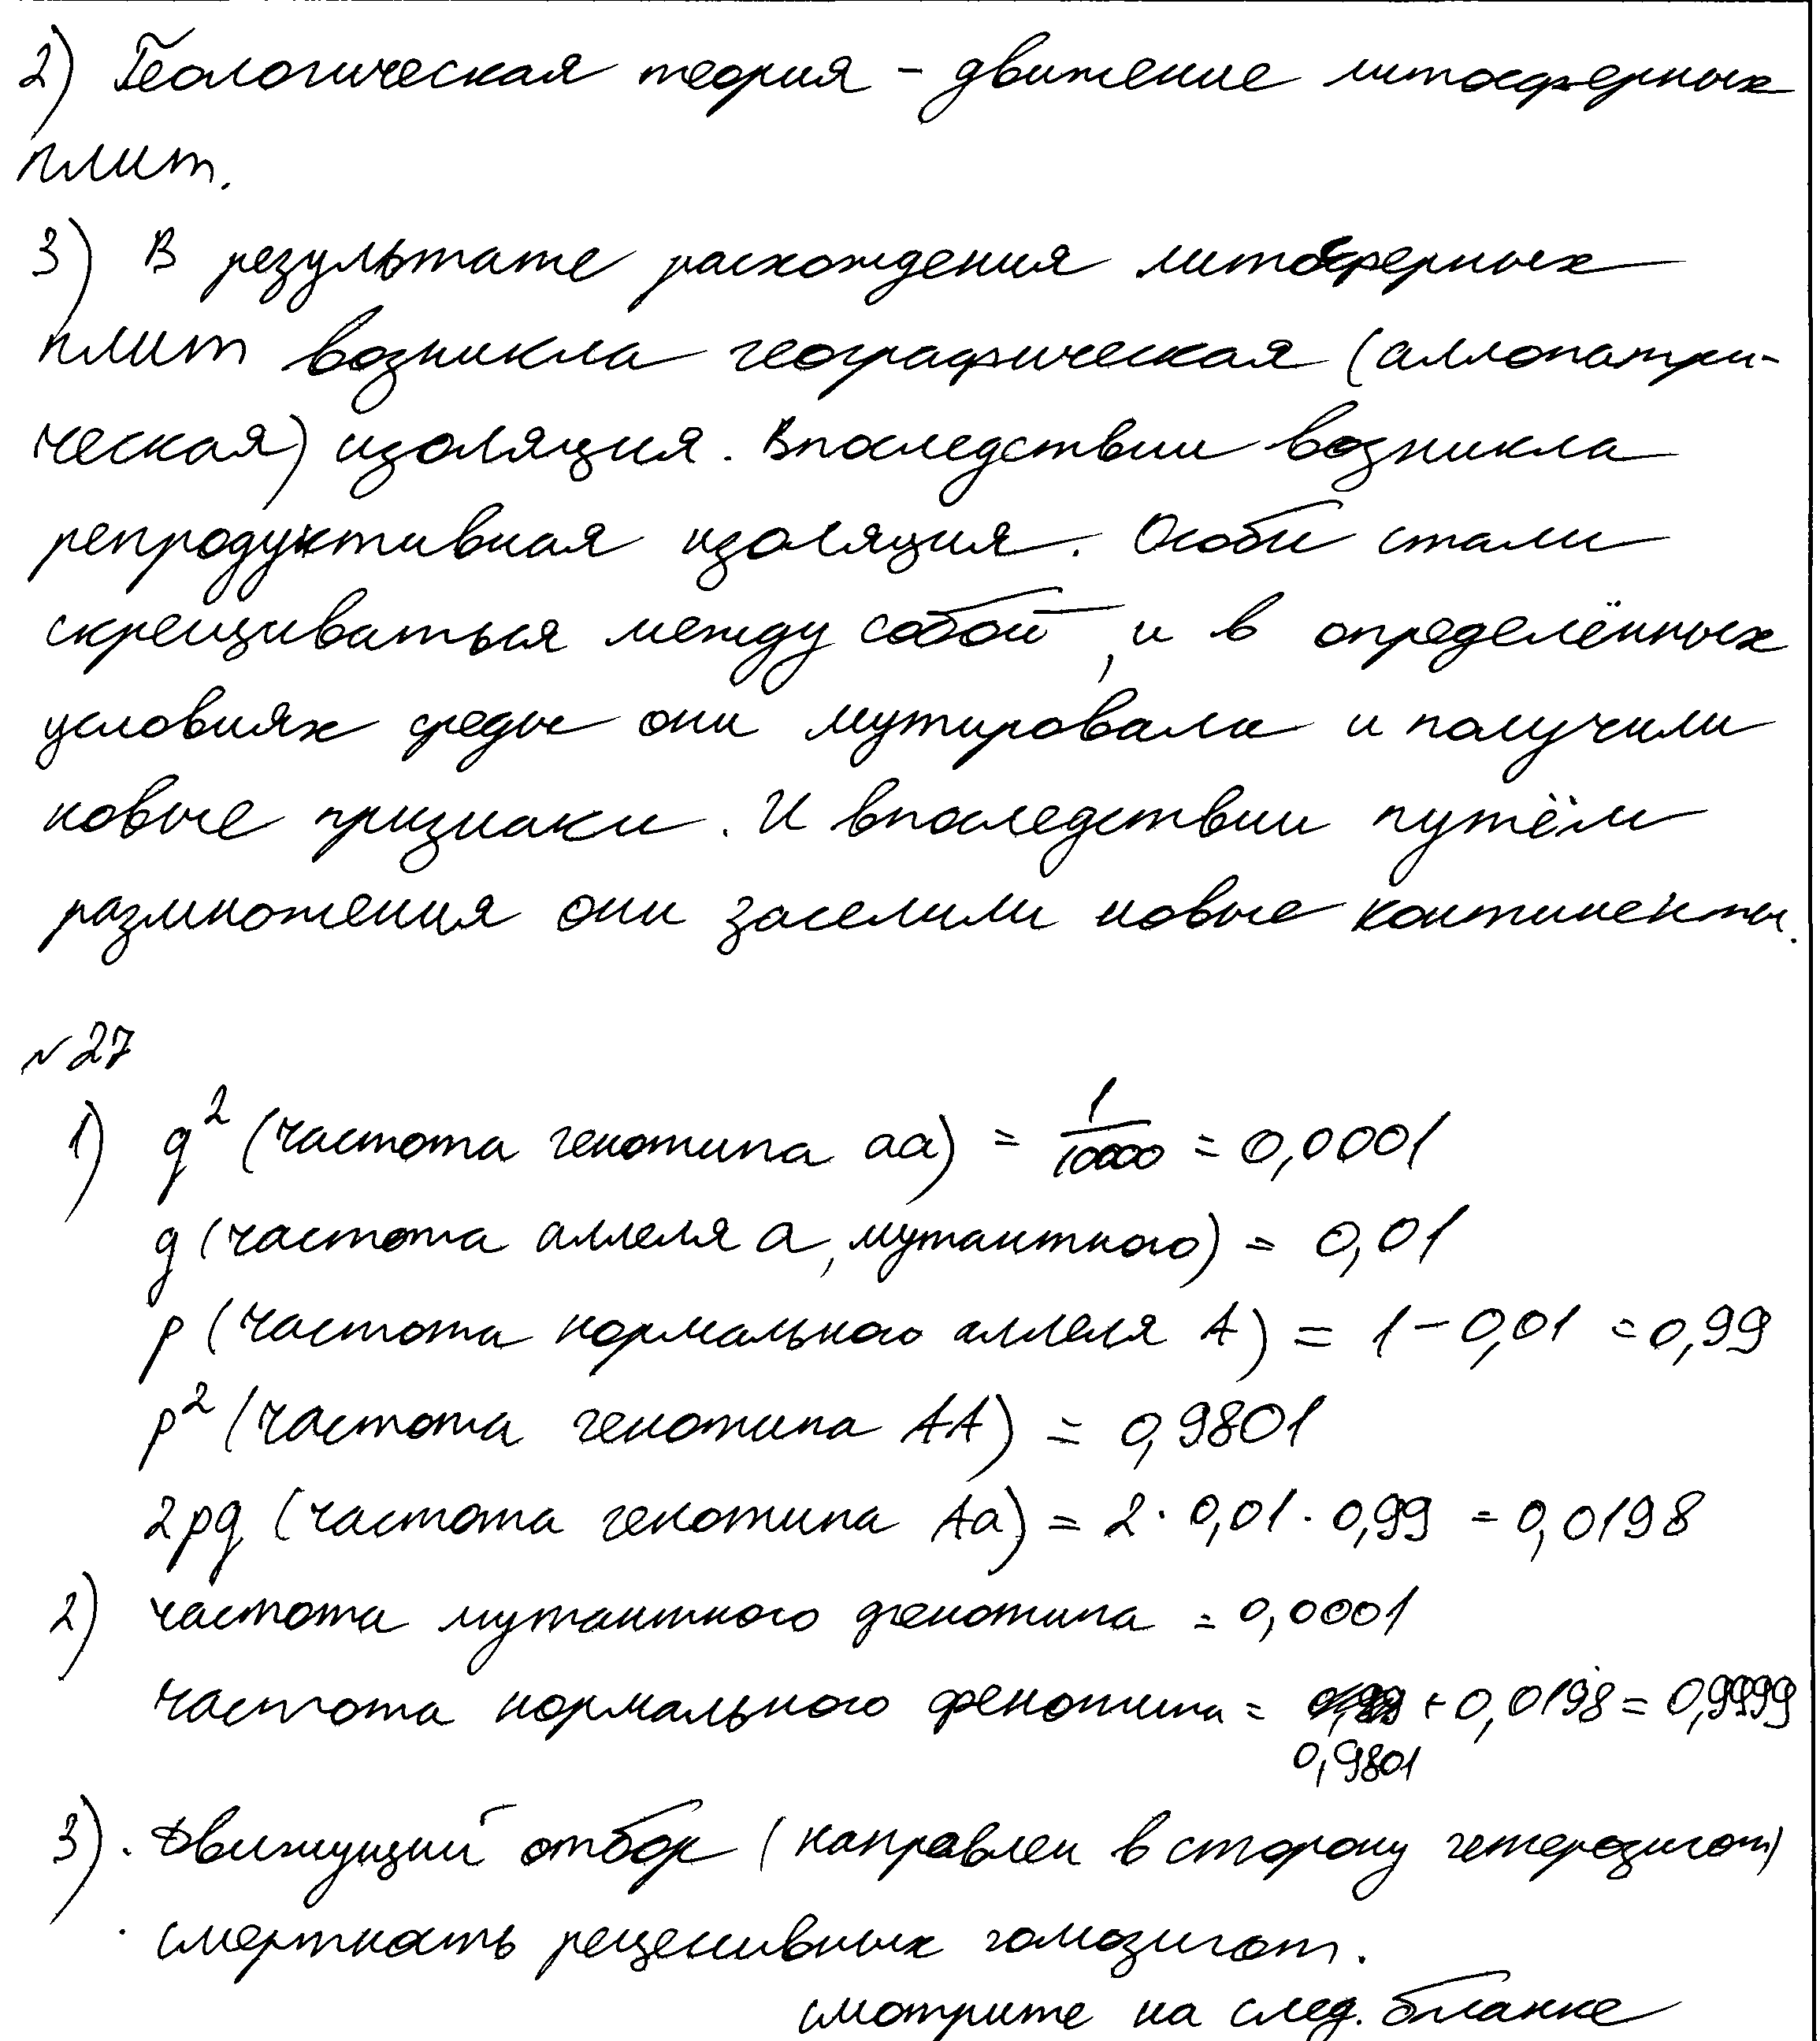 2) Геологическая теория - движение литосферных
плит.
3) В результате расхождения литосферных
плит возникла географическая (аллопатри-
ческая) изоляция. Впоследствии возникла
репродуктивная изоляция. Особи стали
скрещиваться между собой, и в определённых
условиях среды они мутировали и получили
новые признаки. И впоследствии путём
размножения они заселили новые континенты.
№27
1) q² (частота генотипа aa) = 1/10000 = 0,0001
q (частота аллеля a, мутантного) = 0,01
p (частота нормального аллеля A) = 1 - 0,01 = 0,99
p² (частота генотипа AA) = 0,9801
2pq (частота генотипа Aa) = 2 · 0,01 · 0,99 = 0,0198
2) частота мутантного фенотипа = 0,0001
частота нормального фенотипа = + 0,0198 = 0,9999
0,9801
3) · Движущий отбор (направлен в сторону гетерозигот)
· смертность рецесивных гомозигот.
смотрите на след. бланке